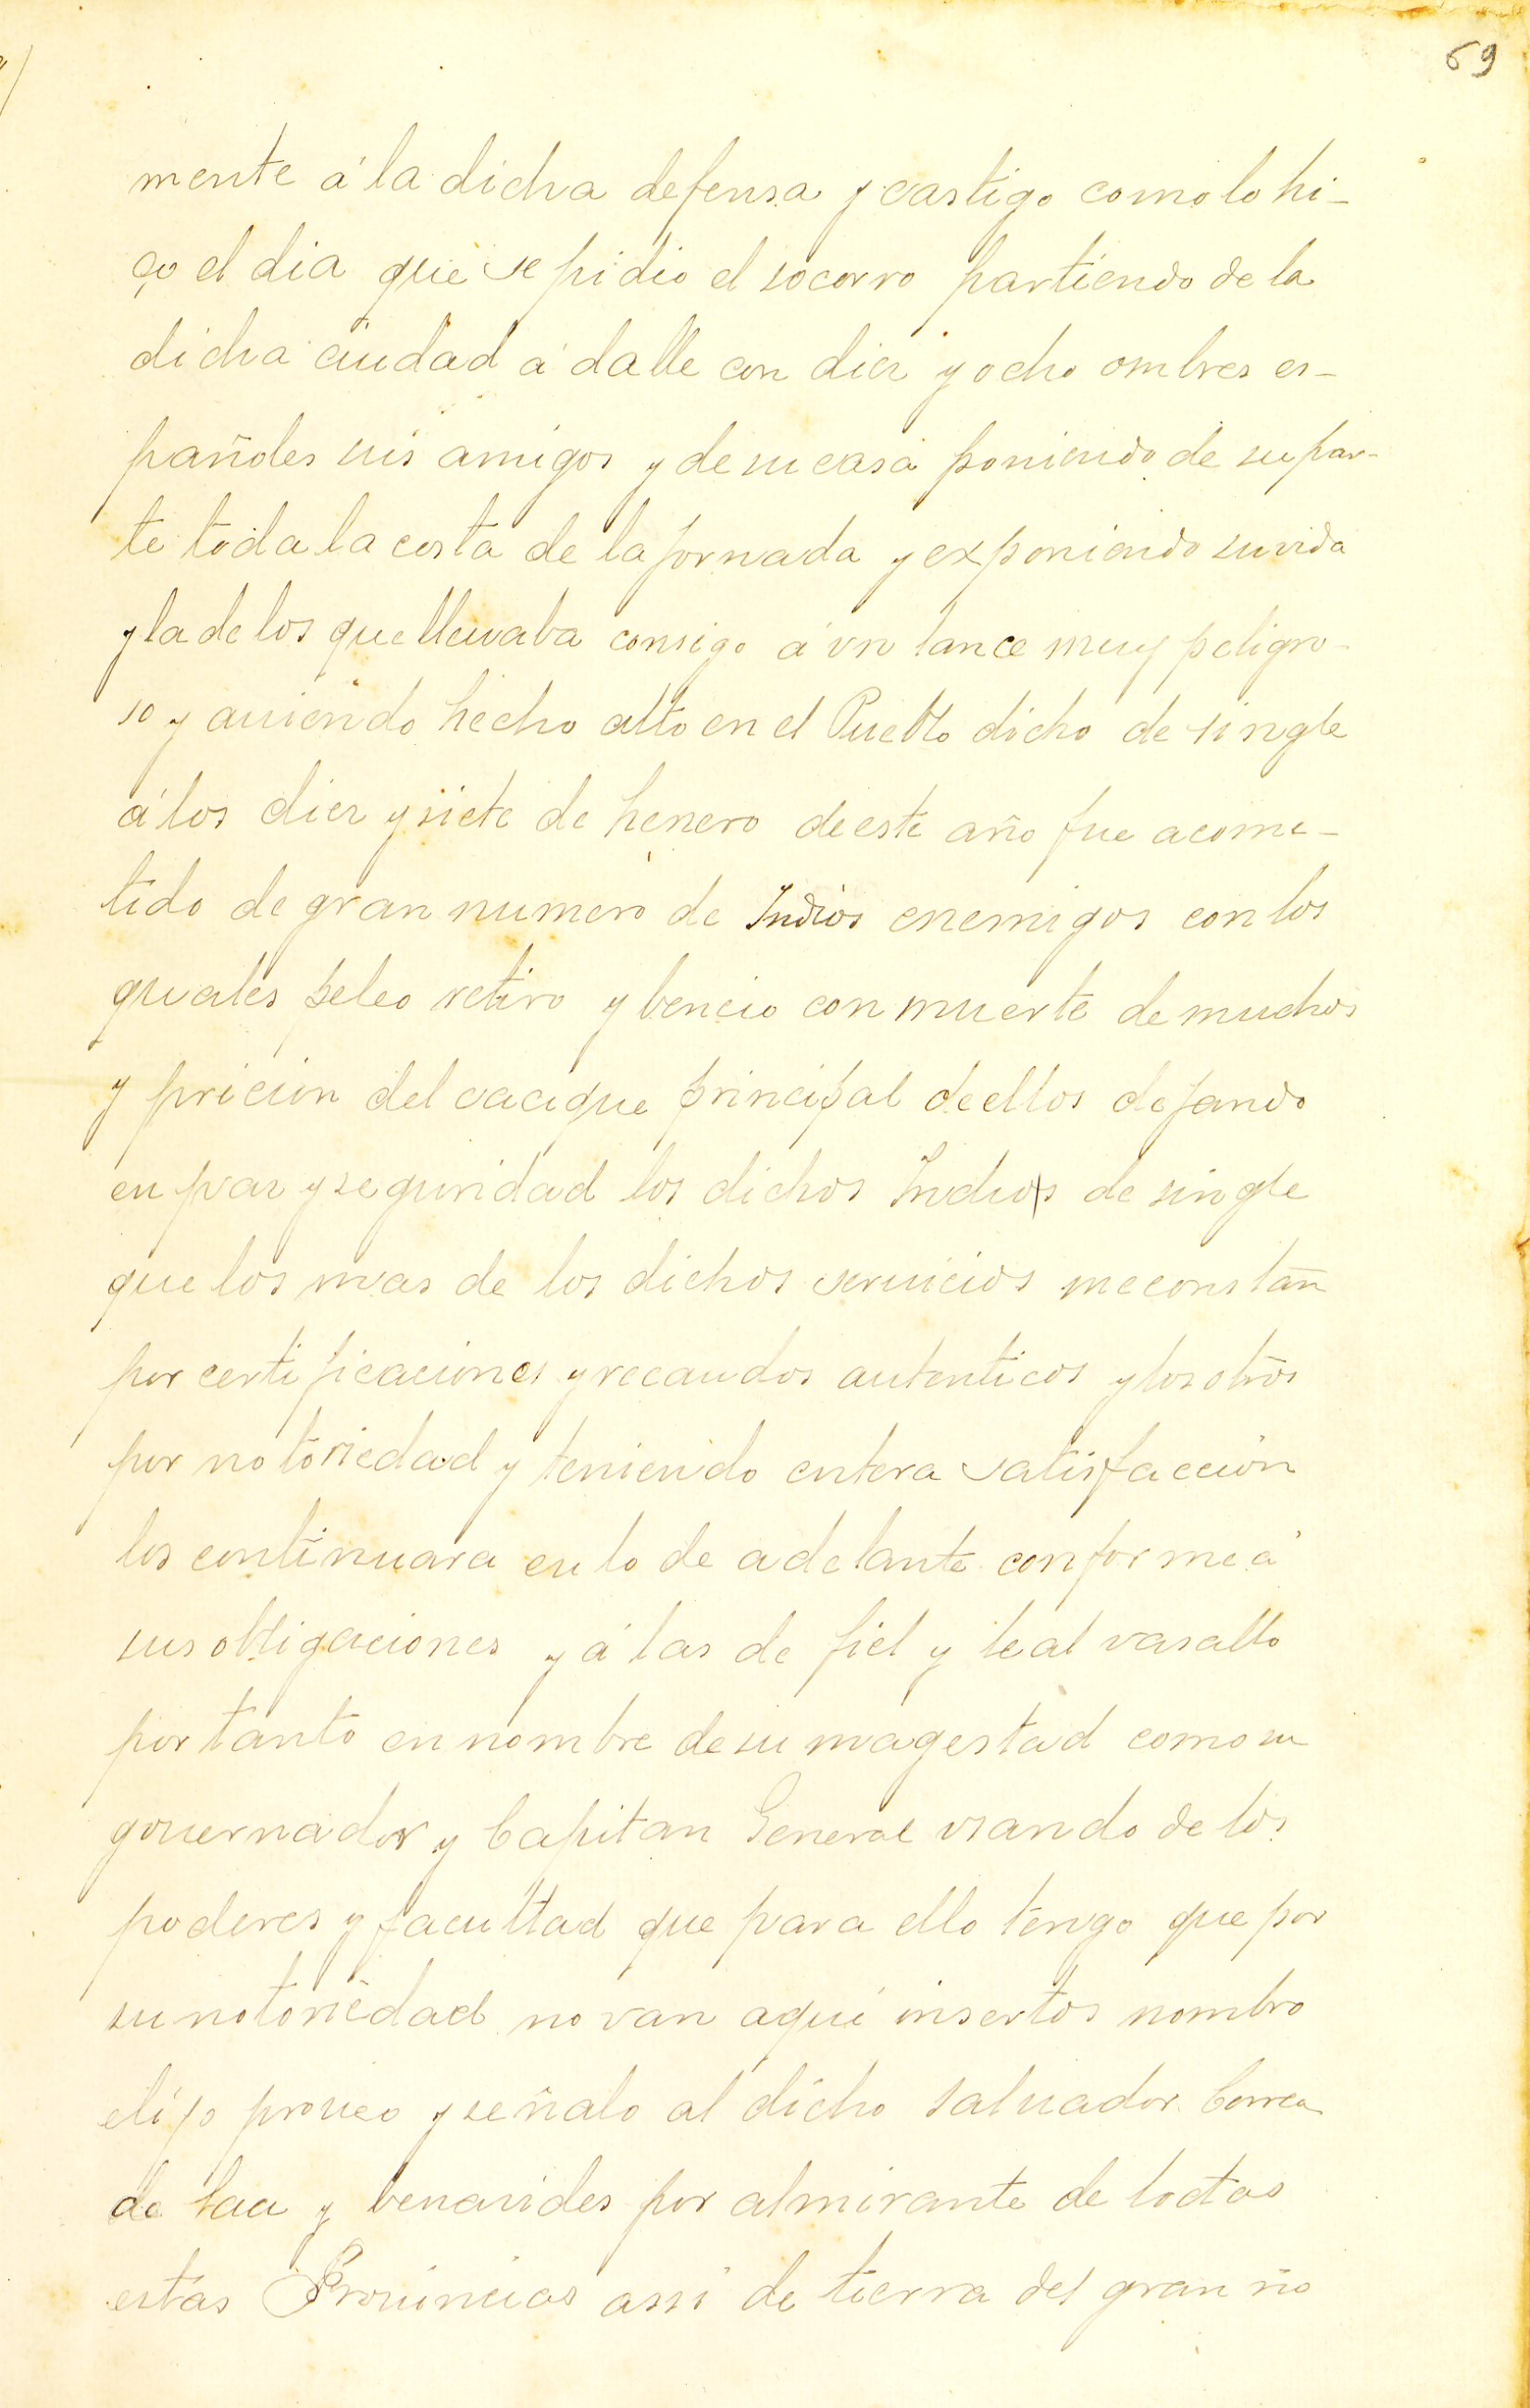 69
mente á la dicha defensa y castigo como lo hi-
ço el dia que se pidio el socorro partiendo de la
dicha ciudad á dalle con diez y ocho ombres es-
pañoles sus amigos y de su casa poniendo de su par-
te toda la costa de la jornada y exponiendo su vida
y la de los que lleuaba consigo á vn lance muy peligro-
so y auiendo hecho alto en el Pueblo dicho de single
á los diez y siete de henero de este año fue acome-
tido de gran numero de Indios enemigos con los
quales peleo retiro y bencio con muerte de muchos
y pricion del cacique principal de ellos dejando
en paz y seguridad los dichos Indios de single
que los mas de los dichos seruicios me constan
por certificaciones y recaudos autenticos y los otros
por notoriedad y teniendo entera satisfaccion
los continuara en lo de adelante conforme á
sus obligaciones y á las de fiel y leal vasallo
por tanto en nombre de su magestad como su
gouernador y Capitan General vsando de los
poderes y facultad que para ello tengo que por
su notoriedad no van aqui insertos nombro
elijo proueo y señalo al dicho saluador Correa
de saa y benauides por almirante de todas
estas Prouincias assi de tierra del gran rio